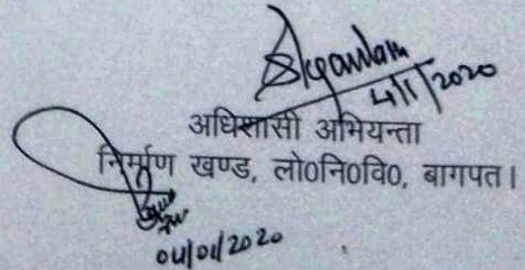 4/1/2020
अधिशासी अभियन्ता
निर्माण खण्ड, लो0नि0वि0, बागपत।
04/01/2020